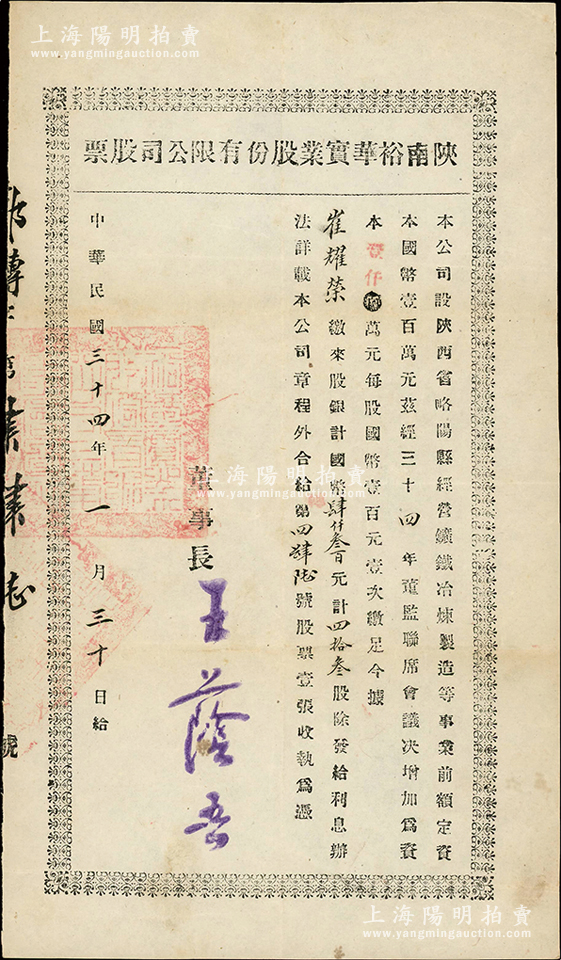 上海陽明拍賣
www.yangmingauction.com
陝南裕華實業股份有限公司股票
本公司設陝西省略陽縣經營鑛鐵冶煉製造等事業前額定資
本國幣壹百萬元茲經三十四年董監聯席會議决增加為資
本壹仟萬元每股國幣壹百元壹次繳足今據
崔耀榮繳來股銀計國幣肆仟叁百元計四拾叁股除發給利息辦
法詳載本公司章程外合給第四肆陆號股票壹張收執為憑
董事長
王蔭吾
中華民國三十四年一月三十日給
號
上海陽明拍賣
www.yangmingauction.com
上海陽明拍賣
www.yangmingauction.com